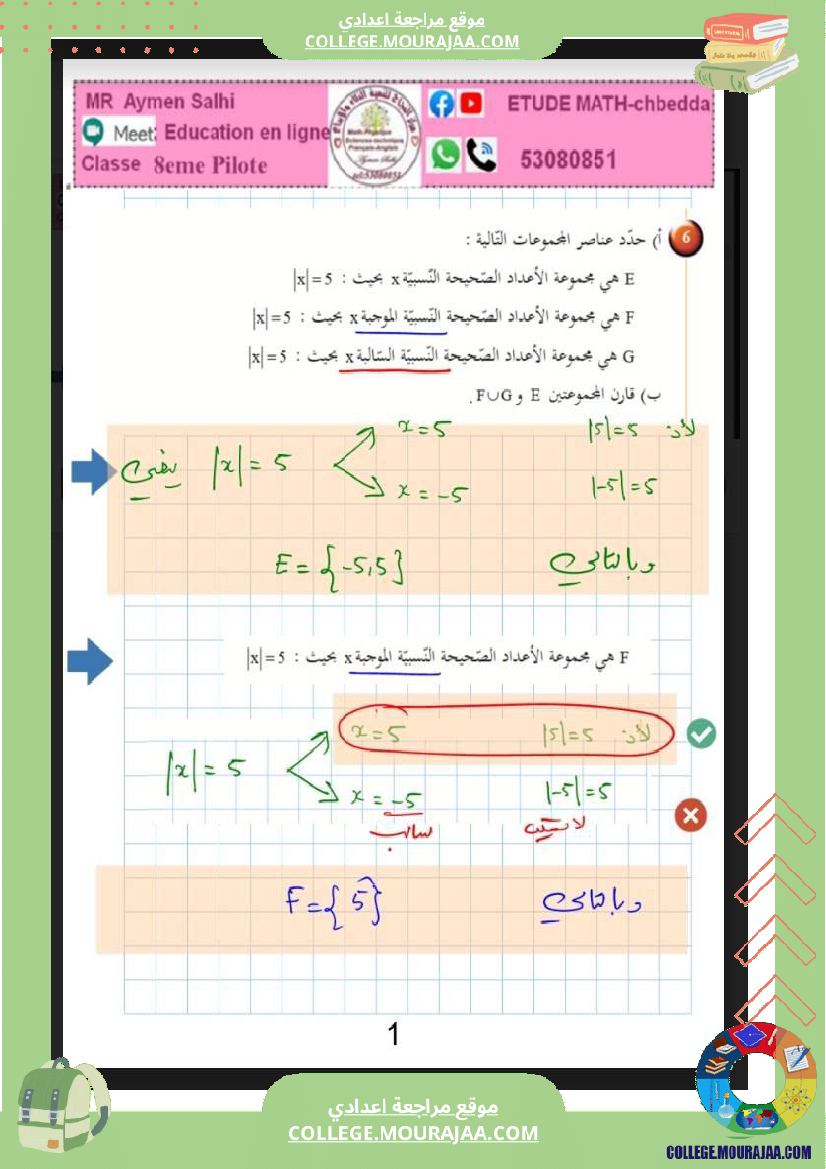 موقع مراجعة اعدادي
COLLEGE.MOURAJAA.COM
MR Aymen Salhi
Meet: Education en ligne
Classe 8eme Pilote
ETUDE MATH-chbedda
53080851
6 أ) حدّد عناصر المجموعات التّالية :
E هي مجموعة الأعداد الصّحيحة النّسبيّة x بحيث : |x|=5
F هي مجموعة الأعداد الصّحيحة النّسبيّة الموجبة x بحيث : |x|=5
G هي مجموعة الأعداد الصّحيحة النّسبيّة السّالبة x بحيث : |x|=5
ب) قارن المجموعتين E و F∪G.
x = 5 |5|=5 لأن
يعني |x| = 5
x = -5 |-5|=5
E = {-5,5} وبالتالي
F هي مجموعة الأعداد الصّحيحة النّسبيّة الموجبة x بحيث : |x|=5
x = 5 |5|=5 لأن
|x| = 5
x = -5 |-5|=5
سالب
F = {5} وبالتالي
1
موقع مراجعة اعدادي
COLLEGE.MOURAJAA.COM
COLLEGE.MOURAJAA.COM